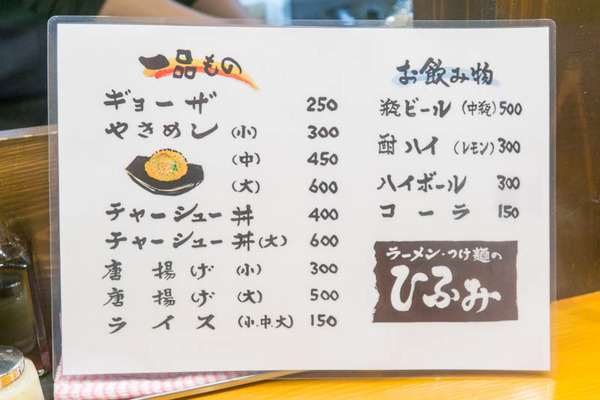 一品もの
ギョーザ 250
やきめし (小) 300
(中) 450
(大) 600
チャーシュー丼 400
チャーシュー丼(大) 600
唐揚げ (小) 300
唐揚げ (大) 500
ライス (小.中.大) 150
お飲み物
瓶ビール (中瓶) 500
酎ハイ (レモン) 300
ハイボール 300
コーラ 150
ラーメン・つけ麺の
ひふみ